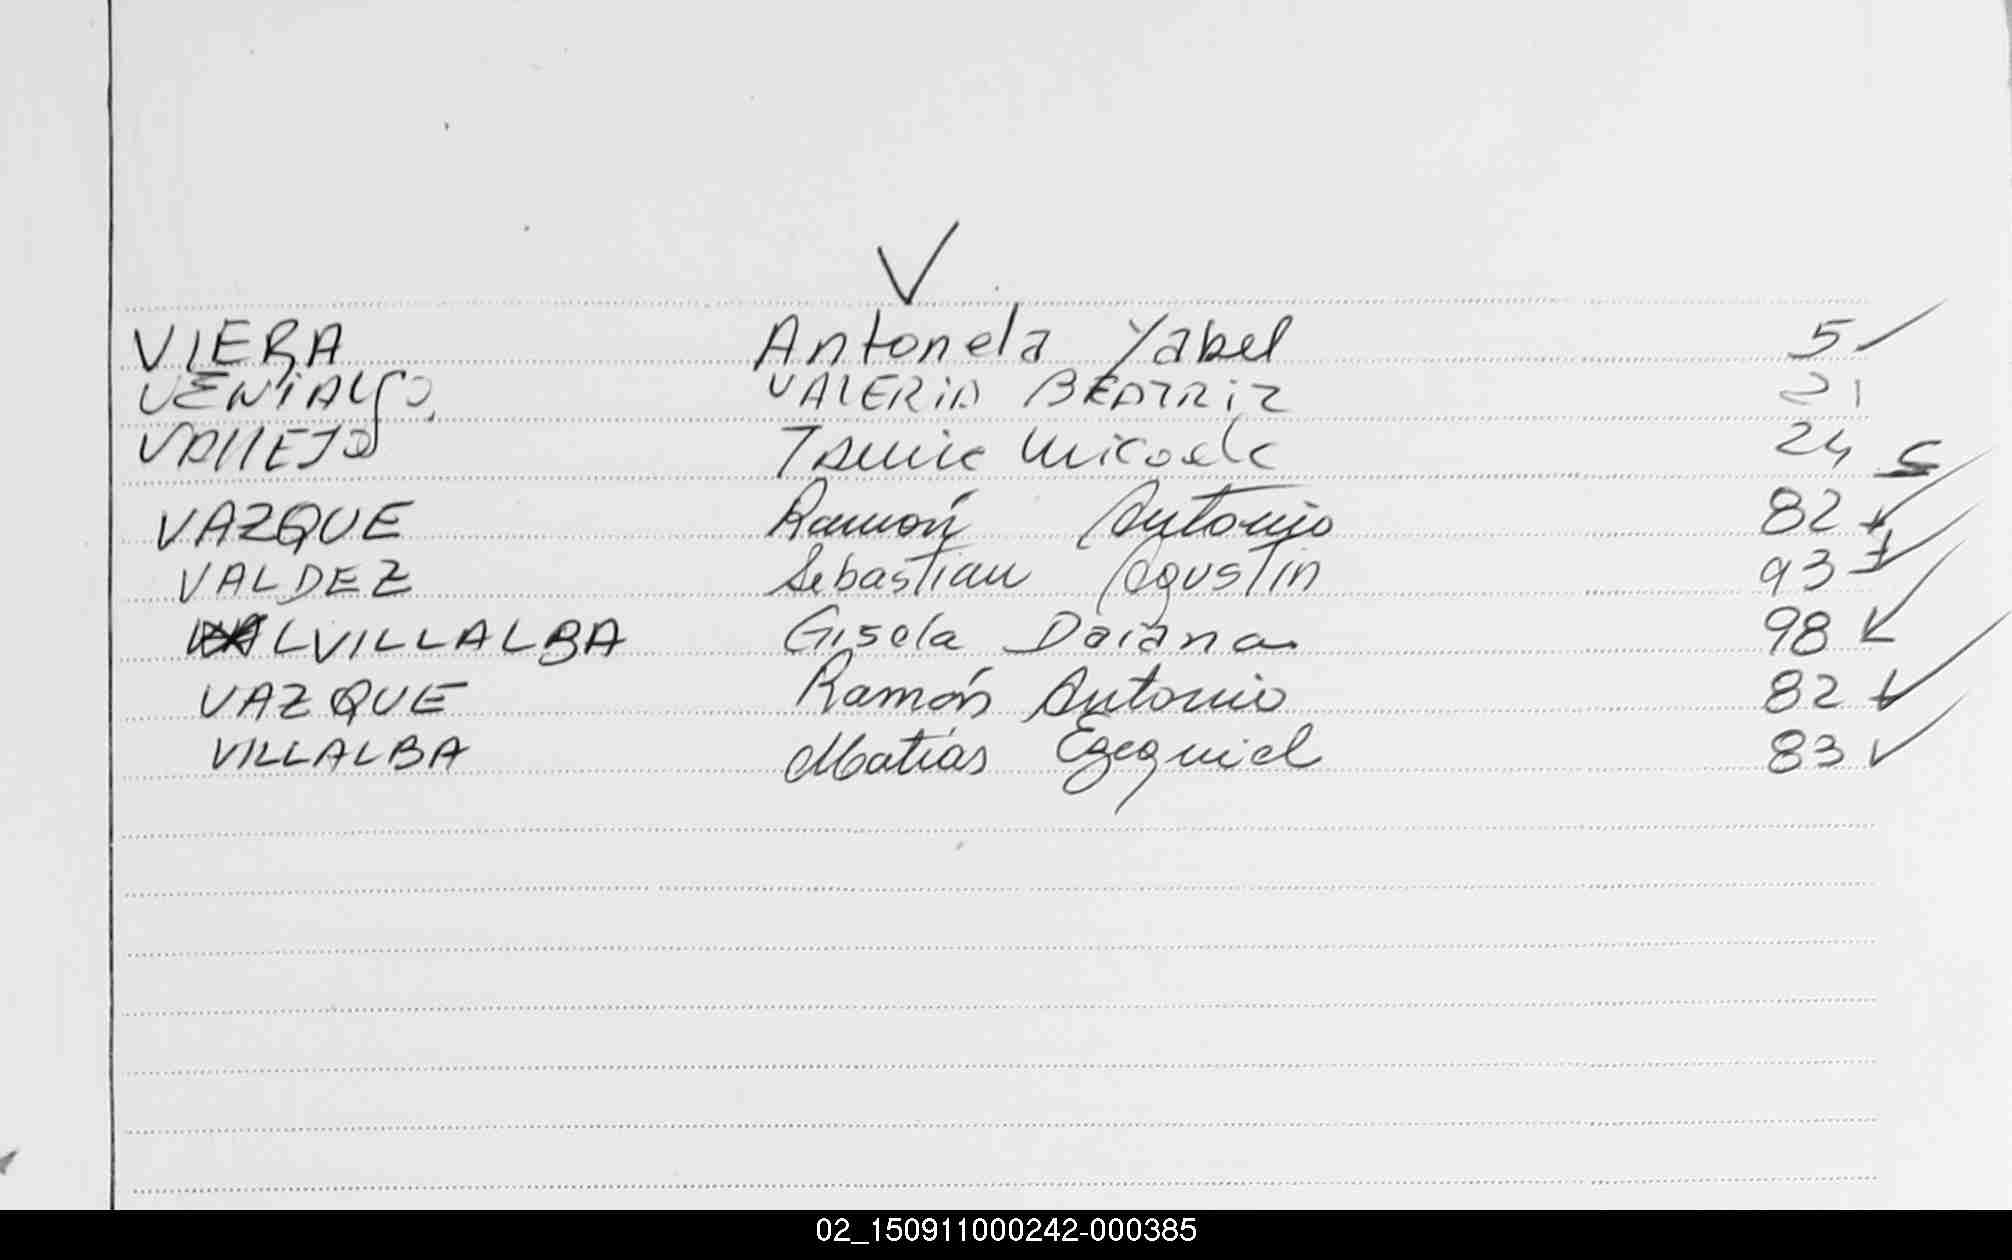 V
VIERA Antonela Yabel 5 ✓
VENIALGO VALERIA BEATRIZ 21
VALLEJO 24
VAZQUE Ramón Antonio 82 ✓
VALDEZ Sebastian Agustin 93 ✓
VILLALBA Gisela Daiana 98 ✓
VAZQUE Ramón Antonio 82 ✓
VILLALBA Matías Ezequiel 83 ✓
02_150911000242-000385